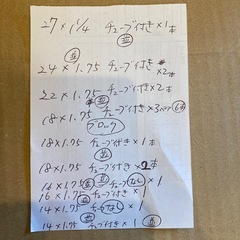 27 × 1 1/4 チューブ付き × 1本
24 × 1.75 チューブ付き × 2本
22 × 1.75 チューブ付き × 2本
18 × 1.75 チューブ付き × 3ペア 6本
ブロック
18 × 1.75 チューブ付き × 1本
18 × 1.75 チューブ付き × 2本
16 × 1.75 チューブなし × 1
16 × 1.75 チューブ付き × 1
14 × 1.75 チューブなし × 1
14 × 1.75 チューブ付き × 1